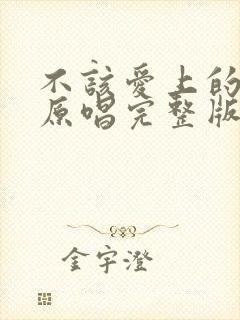 不該愛上的
原唱完整版
金宇澄